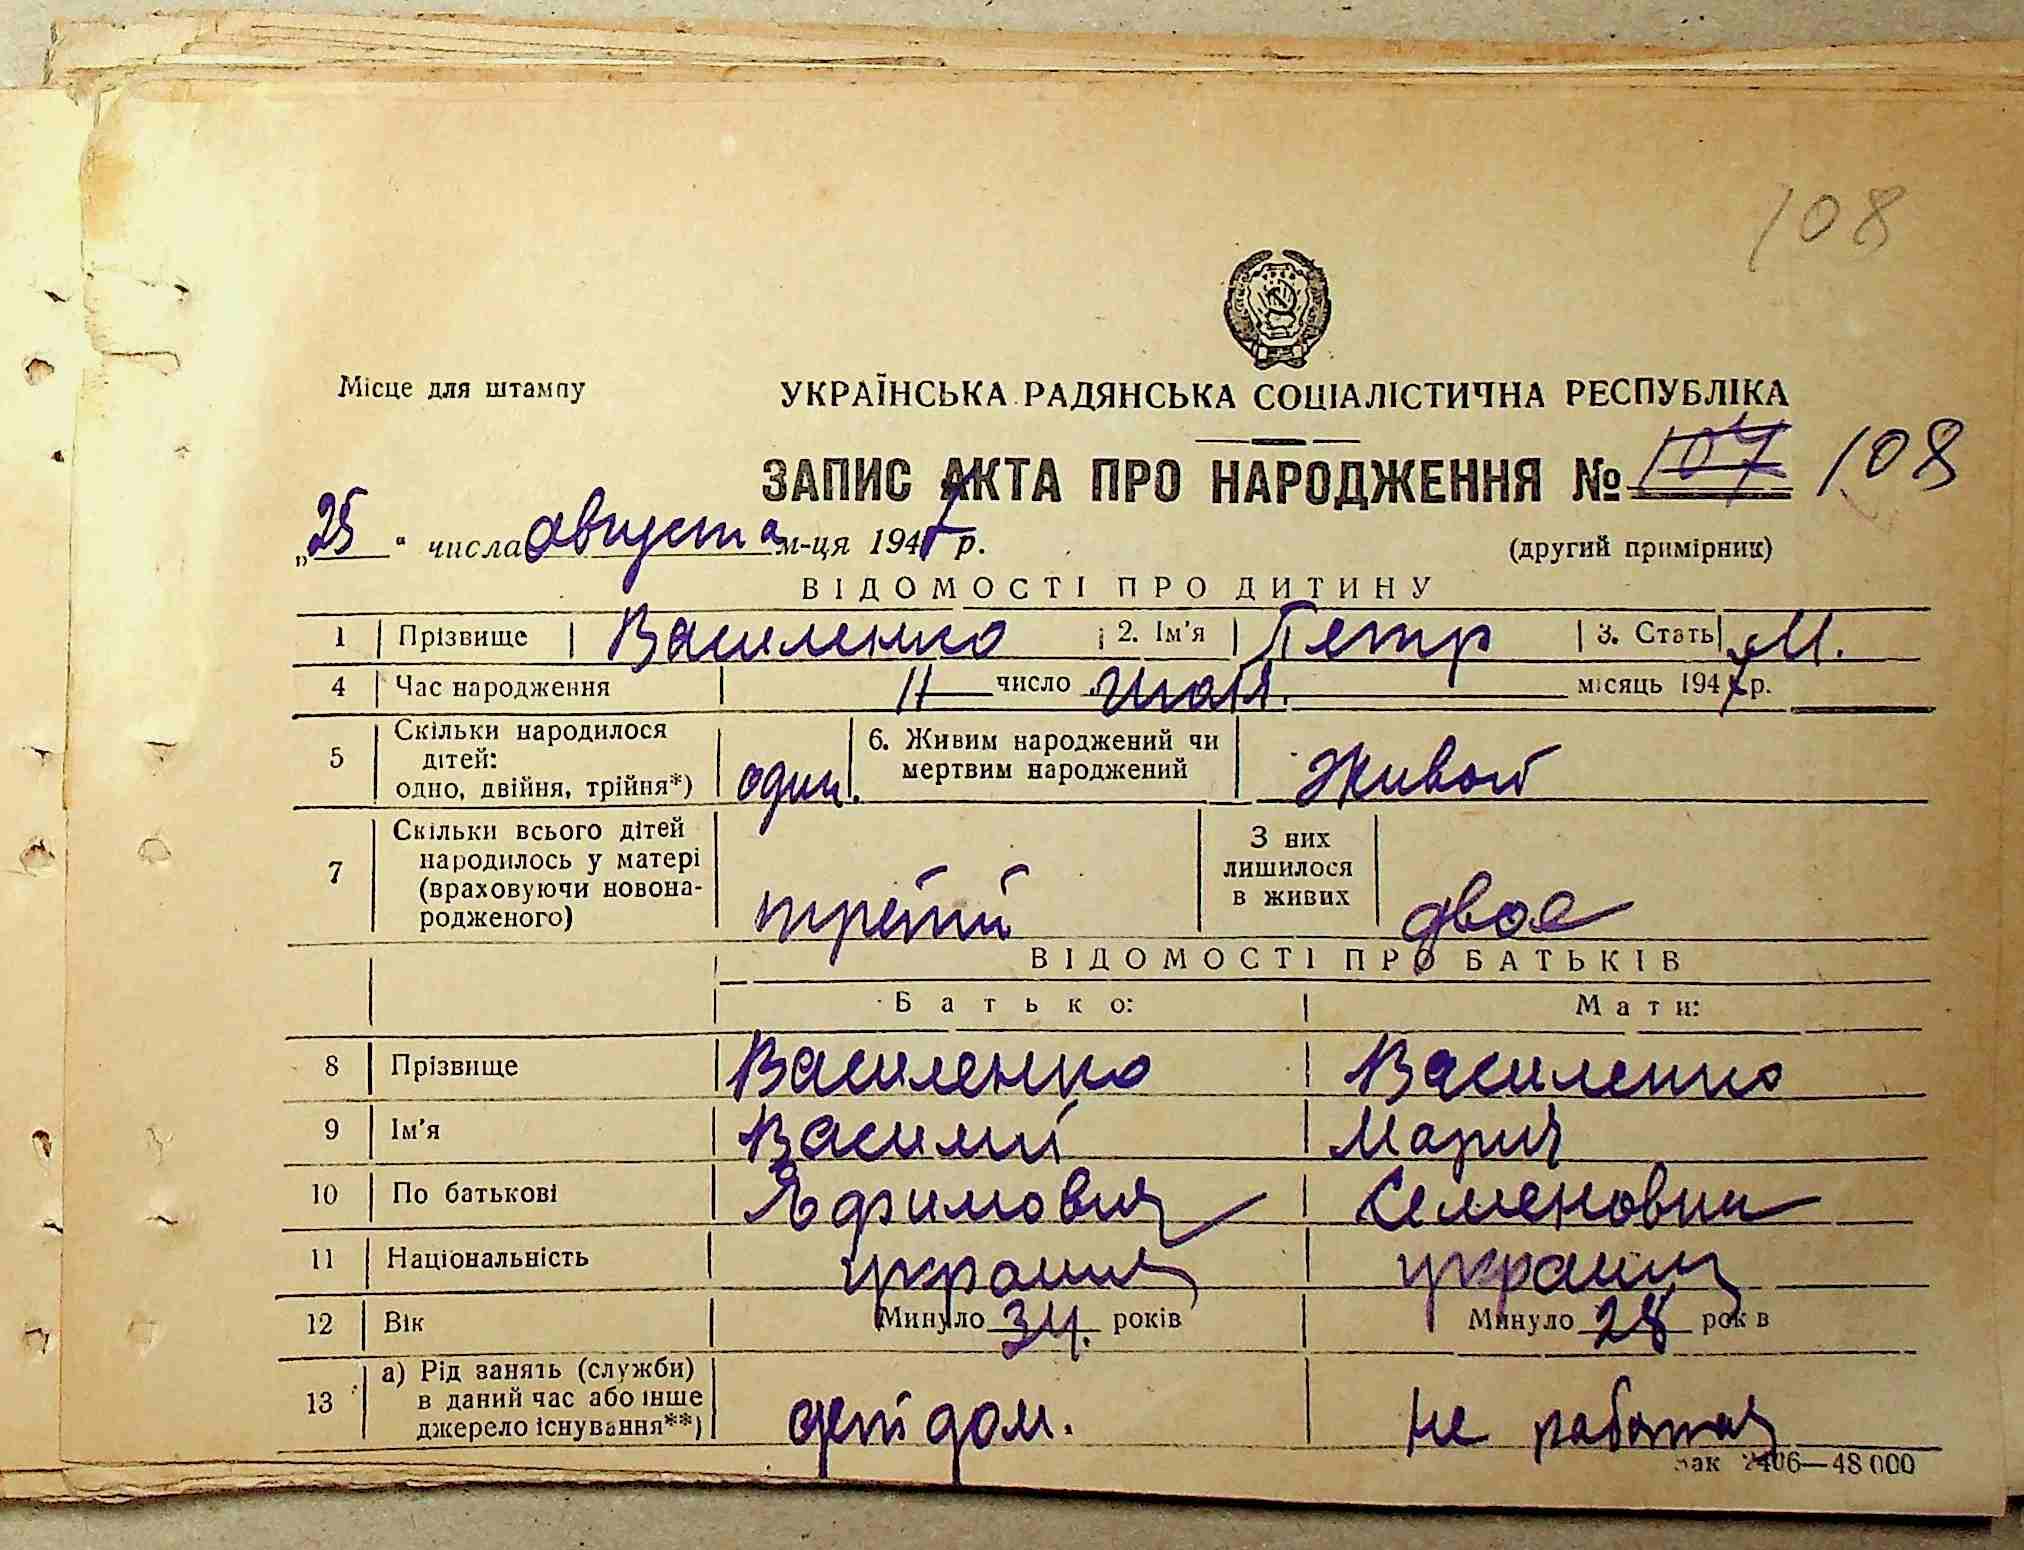 108
Місце для штампу
УКРАЇНСЬКА РАДЯНСЬКА СОЦІАЛІСТИЧНА РЕСПУБЛІКА
ЗАПИС АКТА ПРО НАРОДЖЕННЯ № 107 108
„25" числа августа м-ця 1947 р.
(другий примірник)
ВІДОМОСТІ ПРО ДИТИНУ
1 Прізвище Василенко 2. Ім'я Петр 3. Стать М.
4 Час народження 11 число мая місяць 1947 р.
5 Скільки народилося дітей: одно, двійня, трійня*) один. 6. Живим народжений чи мертвим народжений Живой
7 Скільки всього дітей народилось у матері (враховуючи новонародженого) третий З них лишилося в живих двое
ВІДОМОСТІ ПРО БАТЬКІВ
Батько: Мати:
8 Прізвище Василенко Василенко
9 Ім'я Василий Мария
10 По батькові Ефимович Семеновна
11 Національність
12 Вік Минуло 34. років Минуло 28 рок в
13 а) Рід занять (служби) в даний час або інше джерело існування**) детдом. не работает
Зак 2406—48 000